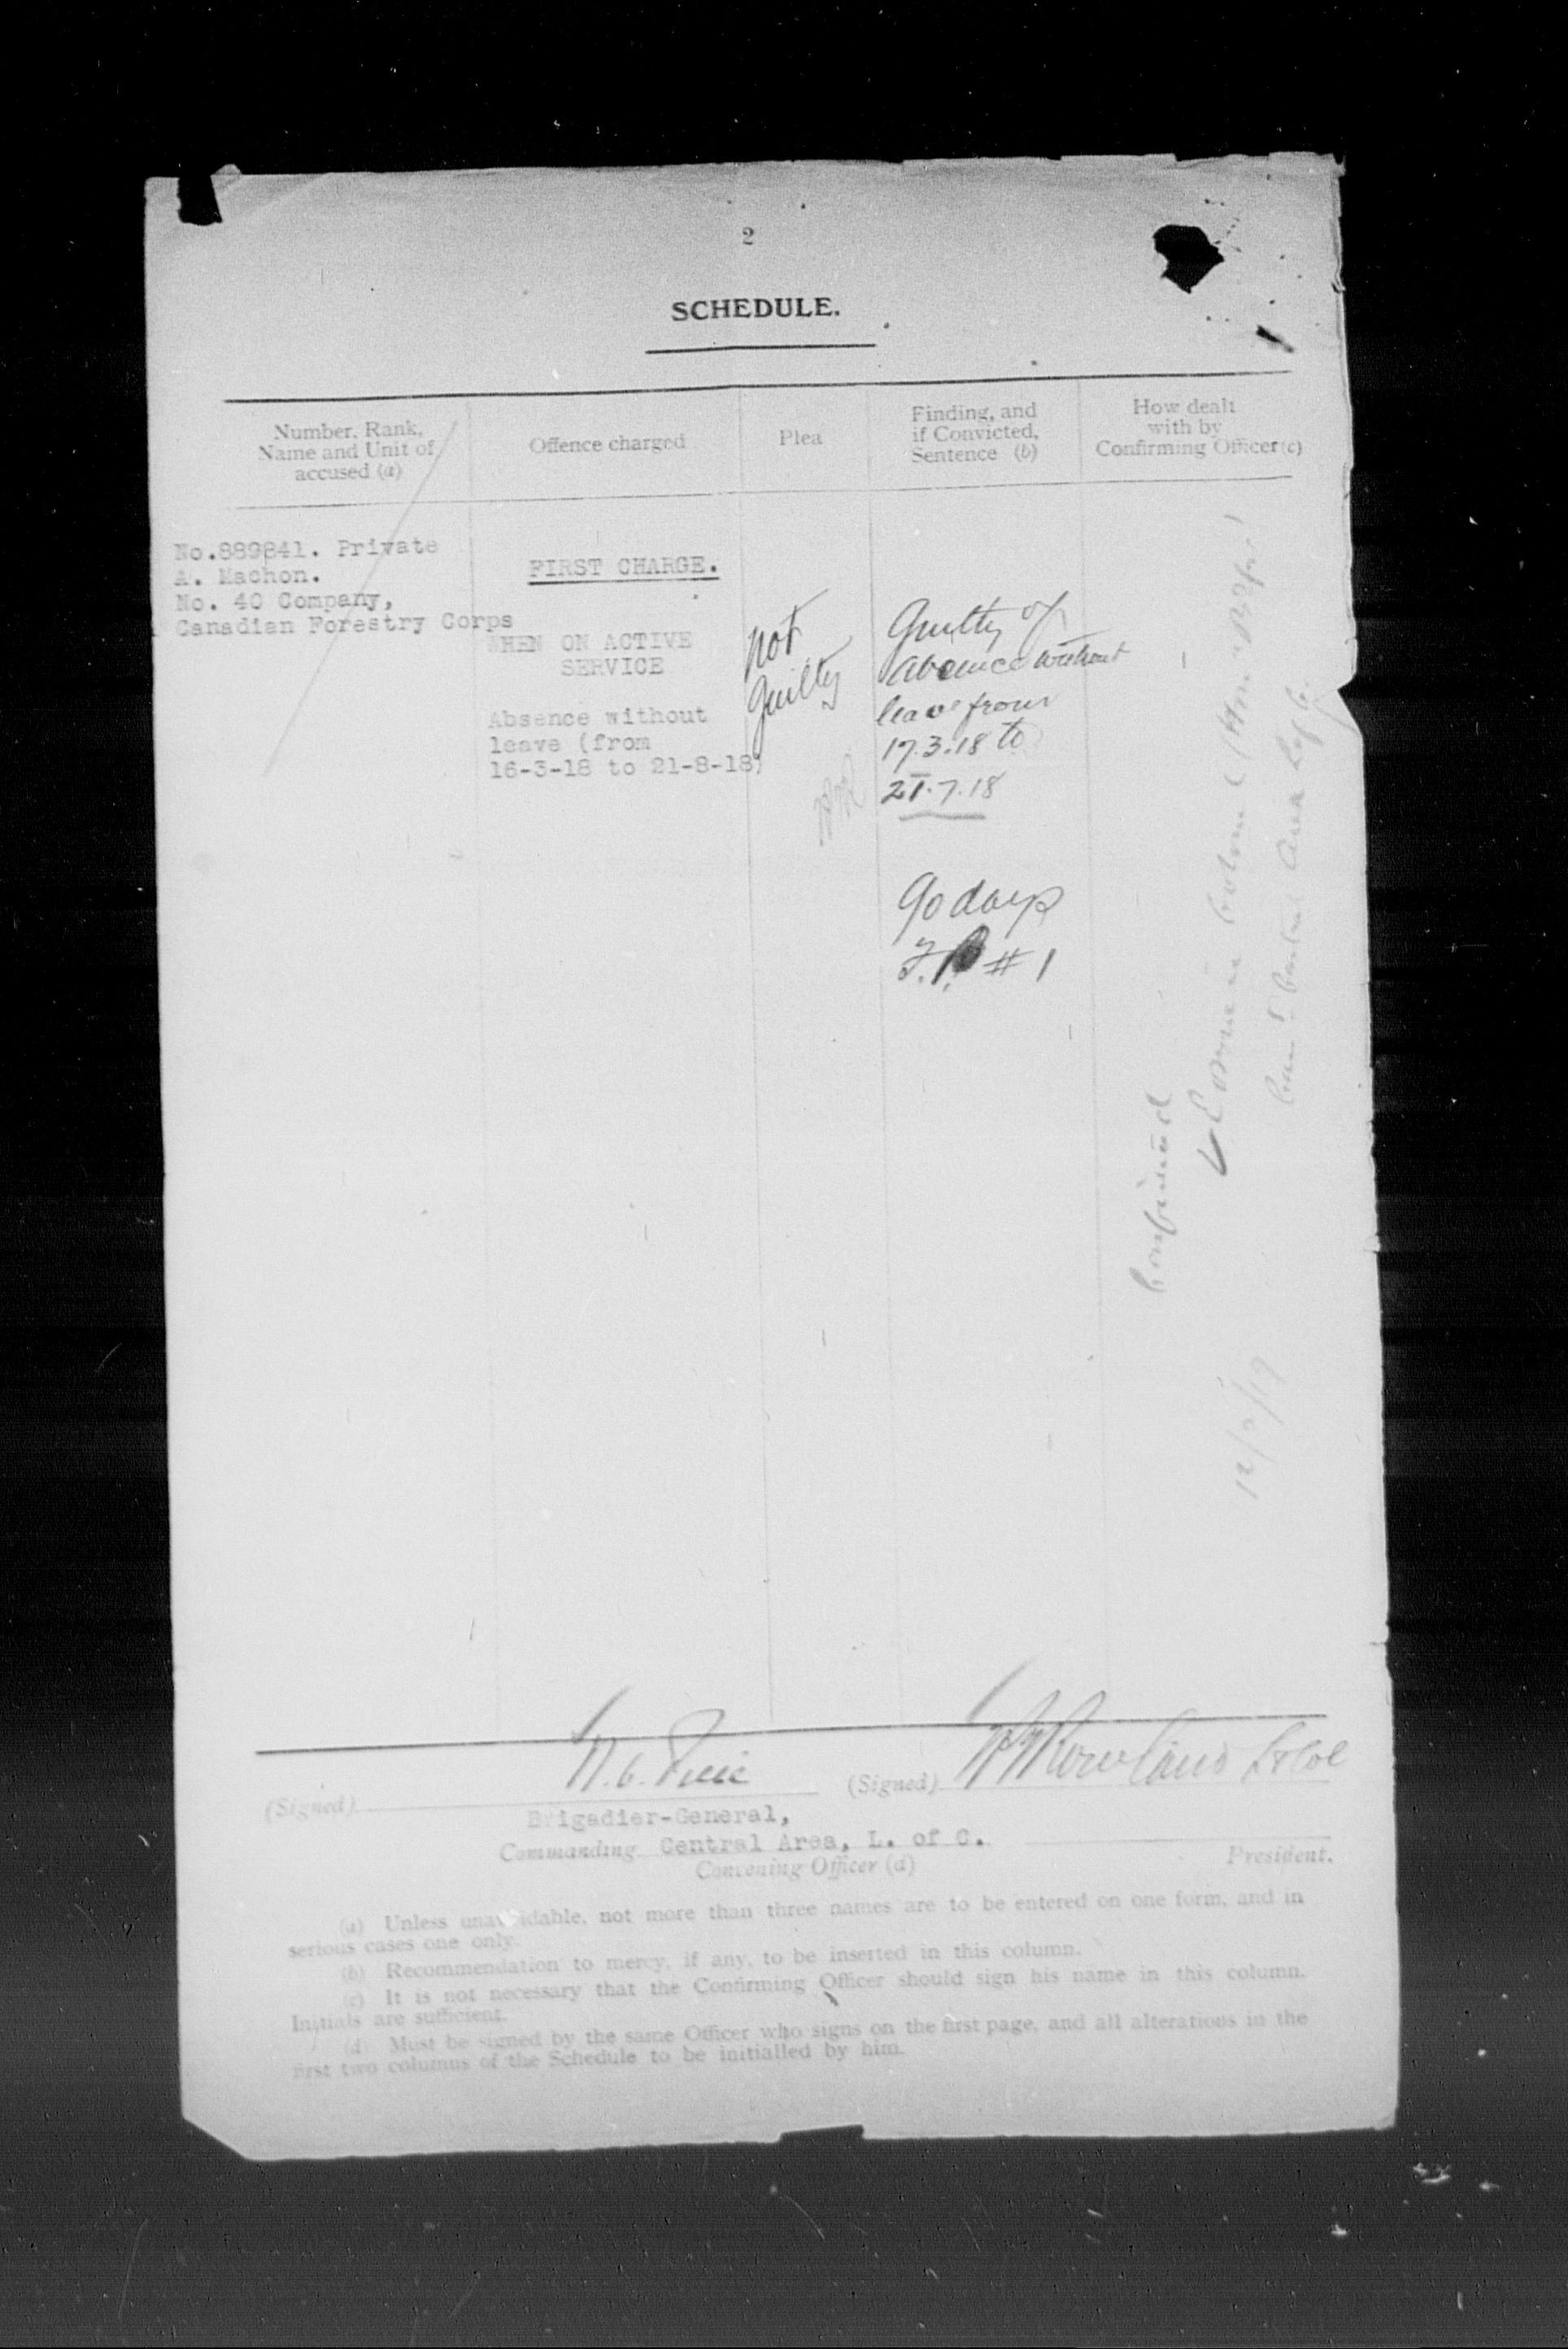 2
SCHEDULE.
Number, Rank,
Name and Unit of
accused (a)
Offence charged
Plea
Finding, and
if Convicted,
Sentence (b)
How dealt
with by
Confirming Officer (c)
No.889841. Private
A. Machon.
No. 40 Company,
Canadian Forestry Corps
FIRST CHARGE.
WHEN ON ACTIVE
SERVICE
Absence without
leave (from
16-3-18 to 21-8-18)
not
guilty
Guilty of
Absence without
leave from
17.3.18 to
21.7.18
90 days
F.P. # 1
Confirmed
Central Area L of C.
(Signed)
Brigadier-General,
Commanding Central Area, L. of C.
Convening Officer (d)
(Signed) Rowland Lt Col
President.
(a) Unless unavoidable, not more than three names are to be entered on one form, and in
serious cases one only.
(b) Recommendation to mercy, if any, to be inserted in this column.
(c) It is not necessary that the Confirming Officer should sign his name in this column.
Initials are sufficient.
(d) Must be signed by the same Officer who signs on the first page, and all alterations in the
first two columns of the Schedule to be initialled by him.